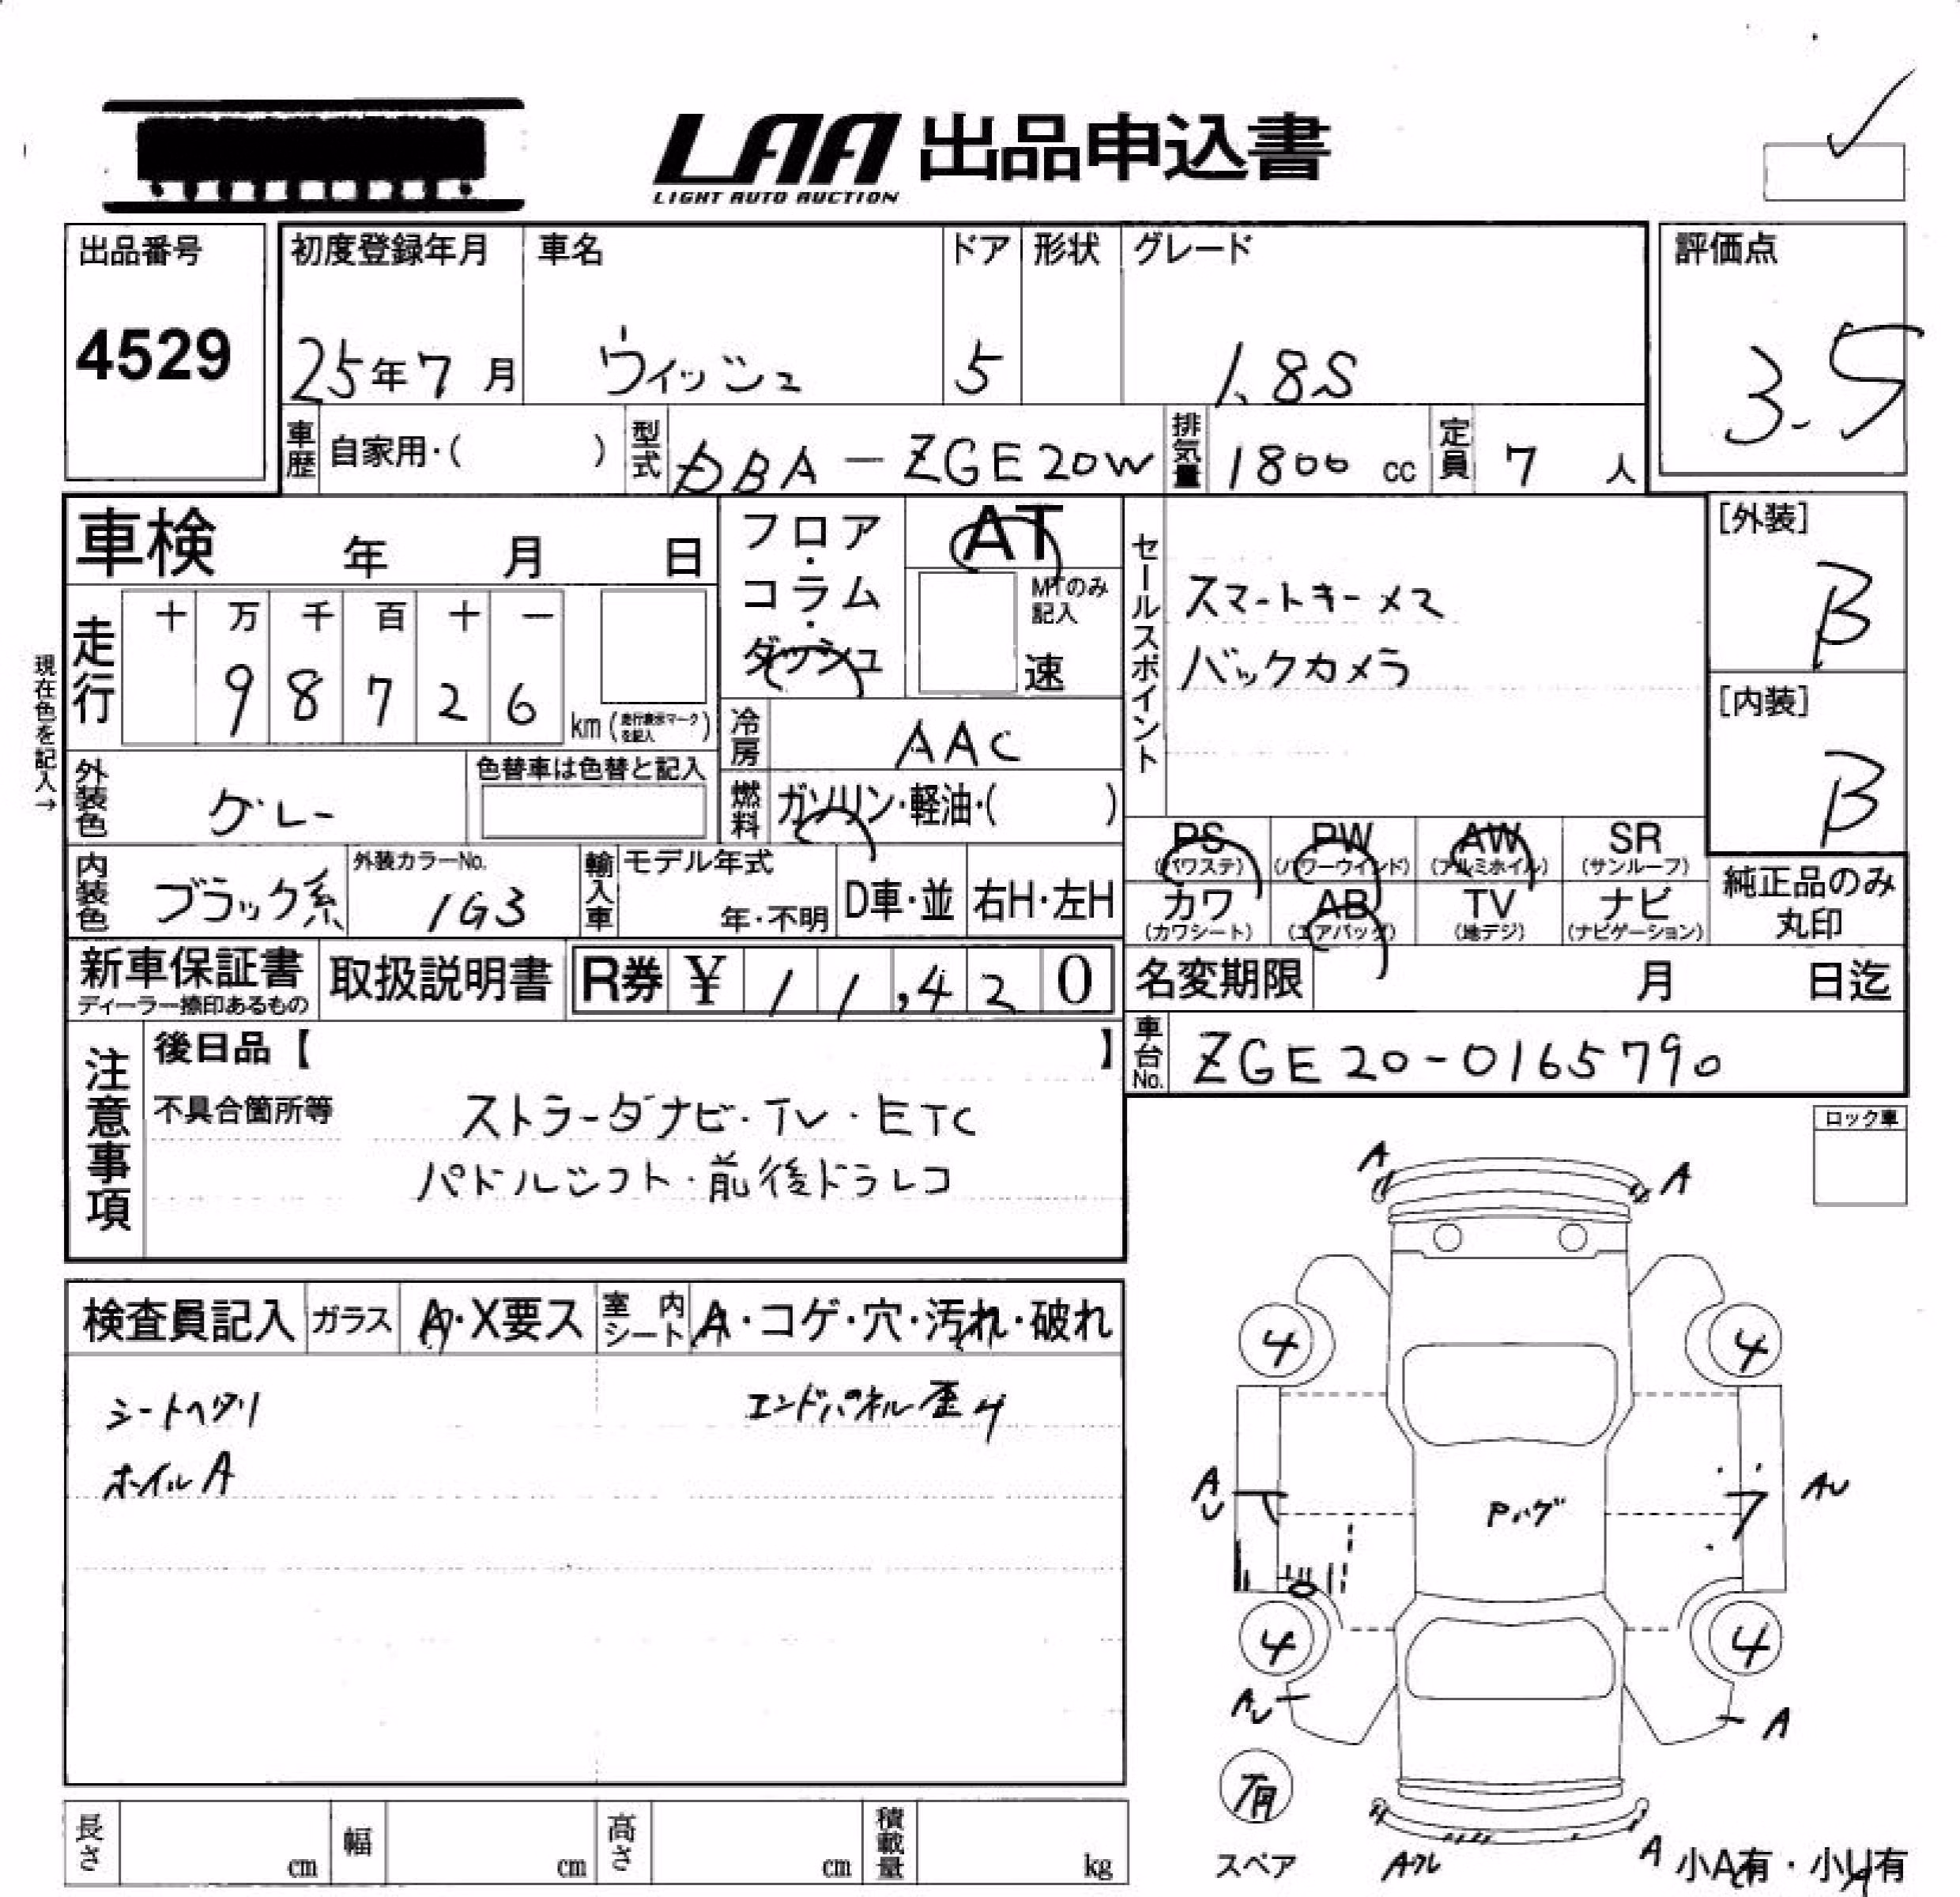 LAA 出品申込書
LIGHT AUTO AUCTION
出品番号
4529
初度登録年月
25年7月
車名
ウィッシュ
ドア
5
形状
グレード
1.8S
評価点
3.5
車歴
自家用・( )
型式
DBA-ZGE20W
排気量
1800 cc
定員
7 人
車検 年 月 日
フロア・コラム・ダッシュ
AT
MTのみ記入
速
セールスポイント
スマートキーメス
バックカメラ
[外装]
B
[内装]
B
現在色を記入→
走行
十 万 千 百 十 一
9 8 7 2 6
km (走行表示マークを記入)
冷房
AAC
外装色
グレー
色替車は色替と記入
燃料
ガソリン・軽油・( )
PS (パワステ)
PW (パワーウインド)
AW (アルミホイル)
SR (サンルーフ)
カワ (カワシート)
AB (エアバッグ)
TV (地デジ)
ナビ (ナビゲーション)
純正品のみ丸印
内装色
ブラック系
外装カラーNo.
1G3
輸入車
モデル年式
年・不明
D車・並
右H・左H
新車保証書
ディーラー捺印あるもの
取扱説明書
R券 ¥ 11,420
名変期限 月 日迄
車台No.
ZGE20-0165790
注意事項
後日品【 】
不具合箇所等
ストラーダナビ・TV・ETC
パドルシフト・前後ドラレコ
ロック車
検査員記入
ガラス
A・X要ス
室内シート
A・コゲ・穴・汚れ・破れ
シートヘタリ
エンドパネル歪ミ
ホイルA
A
A
4
4
A U
Pハゲ
AU
4
4
AU
A
有
スペア
Aワレ
A
小A有・小U有
長さ cm
幅 cm
高さ cm
積載量 kg